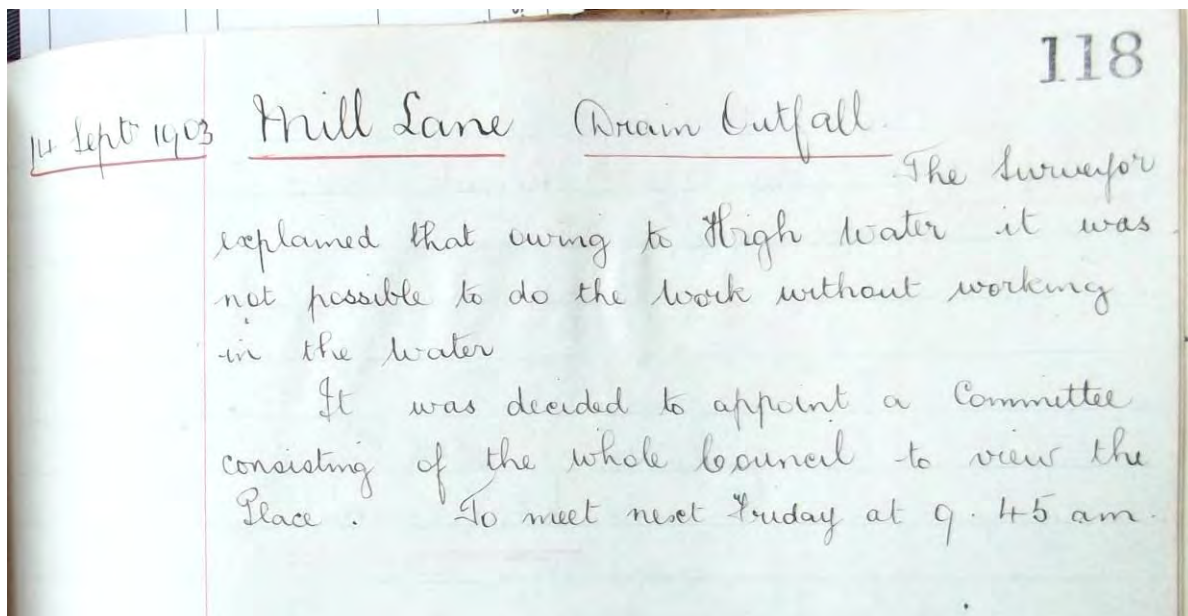 118
14 Sept 1903 Mill Lane Drain Outfall.
The Surveyor
explained that owing to High water it was
not possible to do the work without working
in the water
It was decided to appoint a Committee
consisting of the whole Council to view the
Place. To meet next Friday at 9.45 am.